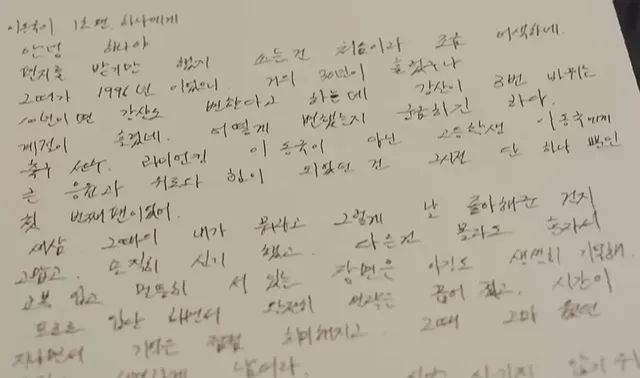 이동국이 1호팬. 하나에게
안녕 하나야
편지를 받기만 했지 쓰는건 처음이라 조금 어색하네.
그때가 1996년 이었으니. 거의 30년이 흘렀구나
10년이면 강산도 변한다고 하는데 강산이 3번 바뀌는
계절이 흘렀네. 어떻게 변했는지 궁금하긴 하다.
축구 선수. 라이언킹 이동국이 아닌 고등학생 이동국에게
큰 응원과 위로와 힘이 되었던 건 그시절 단 하나 뿐인
첫 번째 팬이었어.
새삼 그때의 내가 뭐라고 그렇게 날 좋아해준 건지
고맙고. 솔직히 신기 했고. 다른건 몰라도 혼자서
교복 입고 멀뚱히 서 있는 장면은 아직도 생생히 기억해.
프로로 입단 하면서 완전히 연락은 끊어 졌고. 시간이
지나면서 기억은 점점 희미해지고. 그때 그마
남더라.